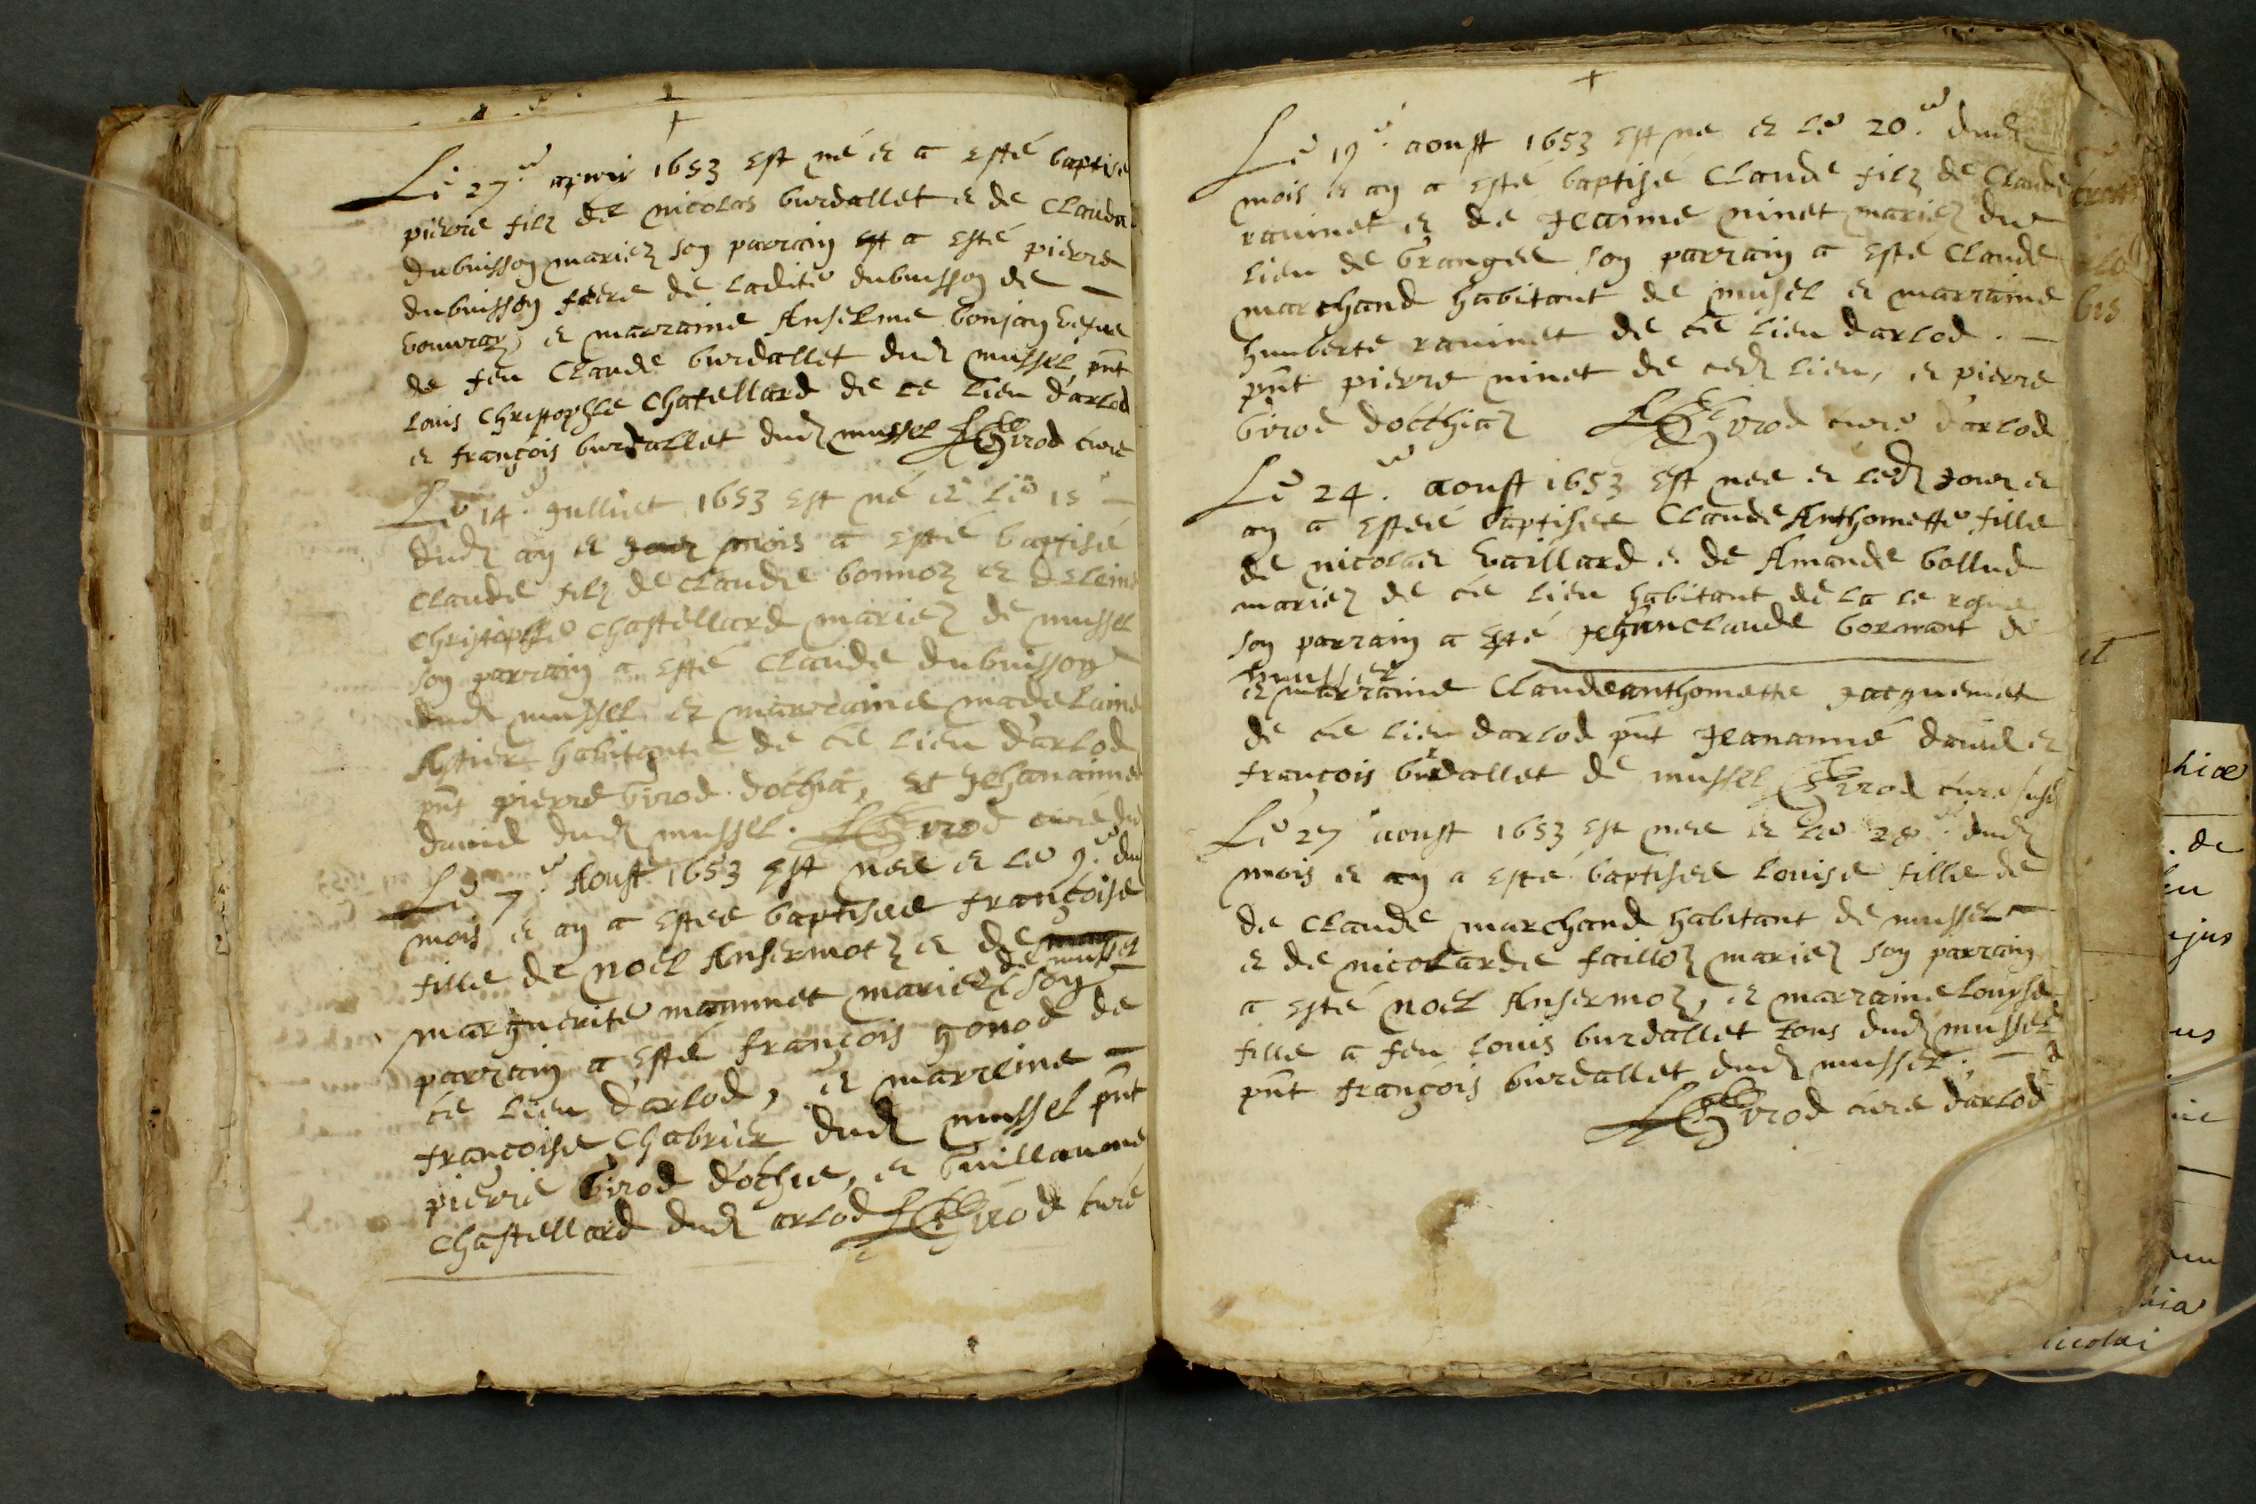 Le 27.e 1653 est né et a esté baptisé
pierre filz de nicolas burdallet et de Clauda
dubuisson mariez son parrain est a esté pierre
dubuisson frere de ladite dubuisson de
et marraine Anselme bonjan vefue
de feu Claude burdallet dud mussel pnt
Louis Christophle Chatellard de ce lieu d'arlod
et françois burdallet dud mussel Girod cure
Le 14.e Jullliet 1653 est né et le 15e
dud an et jour mois a esté baptisé
claude filz de claude bonnoz et
christophle chastellard mariez de mussel
son parrain a esté Claude dubuisson
dud mussel et marraine madelaine
habitante de ce lieu d'arlod
pnt pierre Girod dothia, et Jehananne
david dud mussel. Girod curé du
Le 7.e Aoust 1653 est nee et le 9.e dud
mois et an a estee baptisee françoise
fille de noel Ansermoz et de
marguerite mammet mariez de mussel son
parrain a esté françois gonod de
ce lieu d'arlod, et marreine
françoise Chabrier dud mussel pnt
pierre Girod d'othie, et Guillaume
Chastellard dud arlod Girod curé
Le 19.e aoust 1653 est ne et le 20.e dud
mois et an a esté baptisé Claude filz de Claude
rauinet et de Jeanne ninet mariez du
lieu de Grangee son parrain a esté Claude
marchand habitant de musel et marraine
humberte rauinet de ce lieu darlod.
pnt pierre ninet de ced lieu, et pierre
Girod docthiaz Girod curé d'arlod
Le 24.e aoust 1653 est nee et led jour et
an a esteé baptisee Claude Anthomette fille
de nicolas vaillard et de Amande bollud
mariez de ce lieu habitant de la le rosne
son parrain a esté Jehanclaude bornant de
mussel
et marraine Claudeanthomette Jacquemet
de ce lieu darlod pnt Jeananné dauid et
françois burdallet de mussel Girod cure susd
Le 27 aoust 1653 est nee et le 28.e dud
mois et an a esté baptisee louise fille de
de Claude marchand habitant de mussel
et de nicolarde failloz mariez son parrain
a esté noel Ansermoz, et marraine louyse
fille a feu louis burdallet tous dud mussel
pnt françois burdallet dud mussel.
Girod cure d'arlod
hiæ
de
ejus
us
nicolai